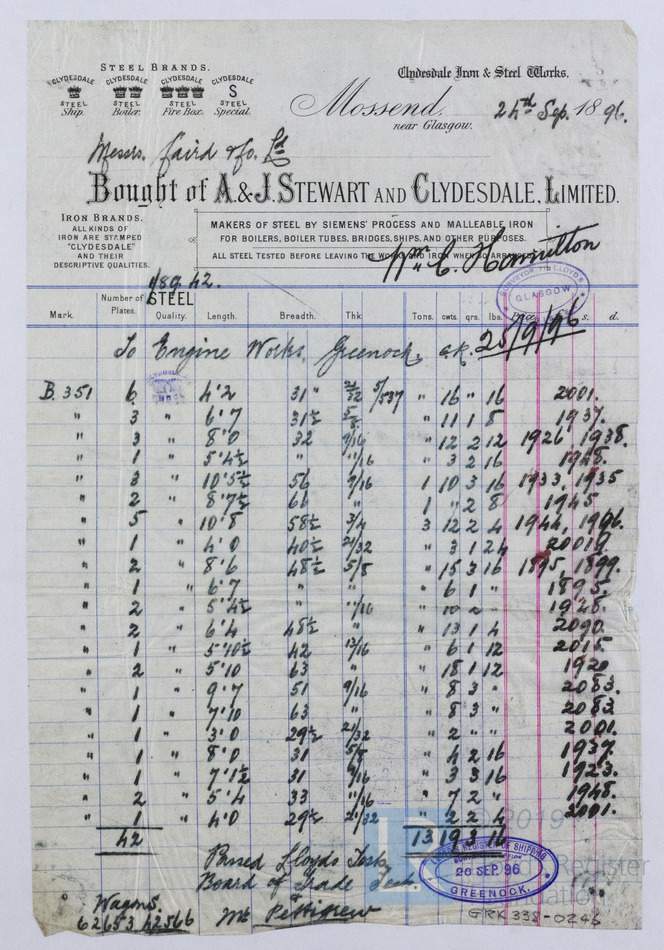 STEEL BRANDS.
CLYDESDALE STEEL Ship. CLYDESDALE STEEL Boiler. CLYDESDALE STEEL Fire Box. CLYDESDALE S STEEL Special.
Clydesdale Iron & Steel Works.
Mossend,
near Glasgow.
24th Sep. 1896.
Messrs. Caird & Co. Ld
Bought of A. & J. STEWART AND CLYDESDALE, LIMITED.
IRON BRANDS.
ALL KINDS OF
IRON ARE STAMPED
"CLYDESDALE"
AND THEIR
DESCRIPTIVE QUALITIES.
MAKERS OF STEEL BY SIEMENS' PROCESS AND MALLEABLE IRON
FOR BOILERS, BOILER TUBES, BRIDGES, SHIPS, AND OTHER PURPOSES.
ALL STEEL TESTED BEFORE LEAVING THE WORKS AND IRON WHEN SO ARRANGED
Wm. C. Hamilton
SURVEYOR TO LLOYD'S
GLASGOW
25/9/96
STEEL
Mark. Number of Plates. Quality. Length. Breadth. Thk. Tons. cwts. qrs. lbs. Price. s. d.
To Engine Works, Greenock.
B. 351 6 " 4'2 31 " 21/32 5/537 " 16 " 16 2001.
" 3 " 6'7 31½ 5/8 " 11 1 8 1937.
" 3 " 8'0 32 9/16 " 12 2 12 1926, 1938.
" 1 " 5'4½ " 11/16 " 3 2 16 1948.
" 3 " 10'5½ 56 9/16 1 10 3 16 1933, 1935
" 2 " 8'7½ 66 " 1 " 2 8 1945
" 5 " 10'8 58½ 3/4 3 12 2 4 1944, 1946.
" 1 " 4'0 40½ 21/32 " 3 1 24
" 2 " 8'6 48½ 5/8 " 15 3 16 1895, 1899.
" 1 " 6'7 " " " 6 1 " 1895.
" 2 " 5'4½ " 11/16 " 10 2 " 1948.
" 2 " 6'4 48½ " " 13 1 4 2090.
" 1 " 5'10½ 42 13/16 " 6 1 12 2015.
" 2 " 5'10 63 " " 18 1 12 1920
" 1 " 9'7 51 9/16 " 8 3 " 2083.
" 1 " 7'10 63 " " 8 3 " 2083
" 1 " 3'0 29½ 21/32 " 2 " " 2001.
" 1 " 8'0 31 5/8 " 4 2 16 1937.
" 1 " 7'1½ 31 9/16 " 3 3 16 1923.
" 2 " 5'4 33 11/16 " 7 2 " 1948.
" 1 " 4'0 29½ 21/32 " 2 2 4 2001.
42 13 19 3 16
Passed Lloyds Tests
Board of Trade Tests.
Mr Pettigrew
Wagons.
62653 42566
LLOYD'S REGISTER OF SHIPPING
26 SEP. 96
GREENOCK.
© 2019
Lloyd's Register
Foundation
GRK338-0246